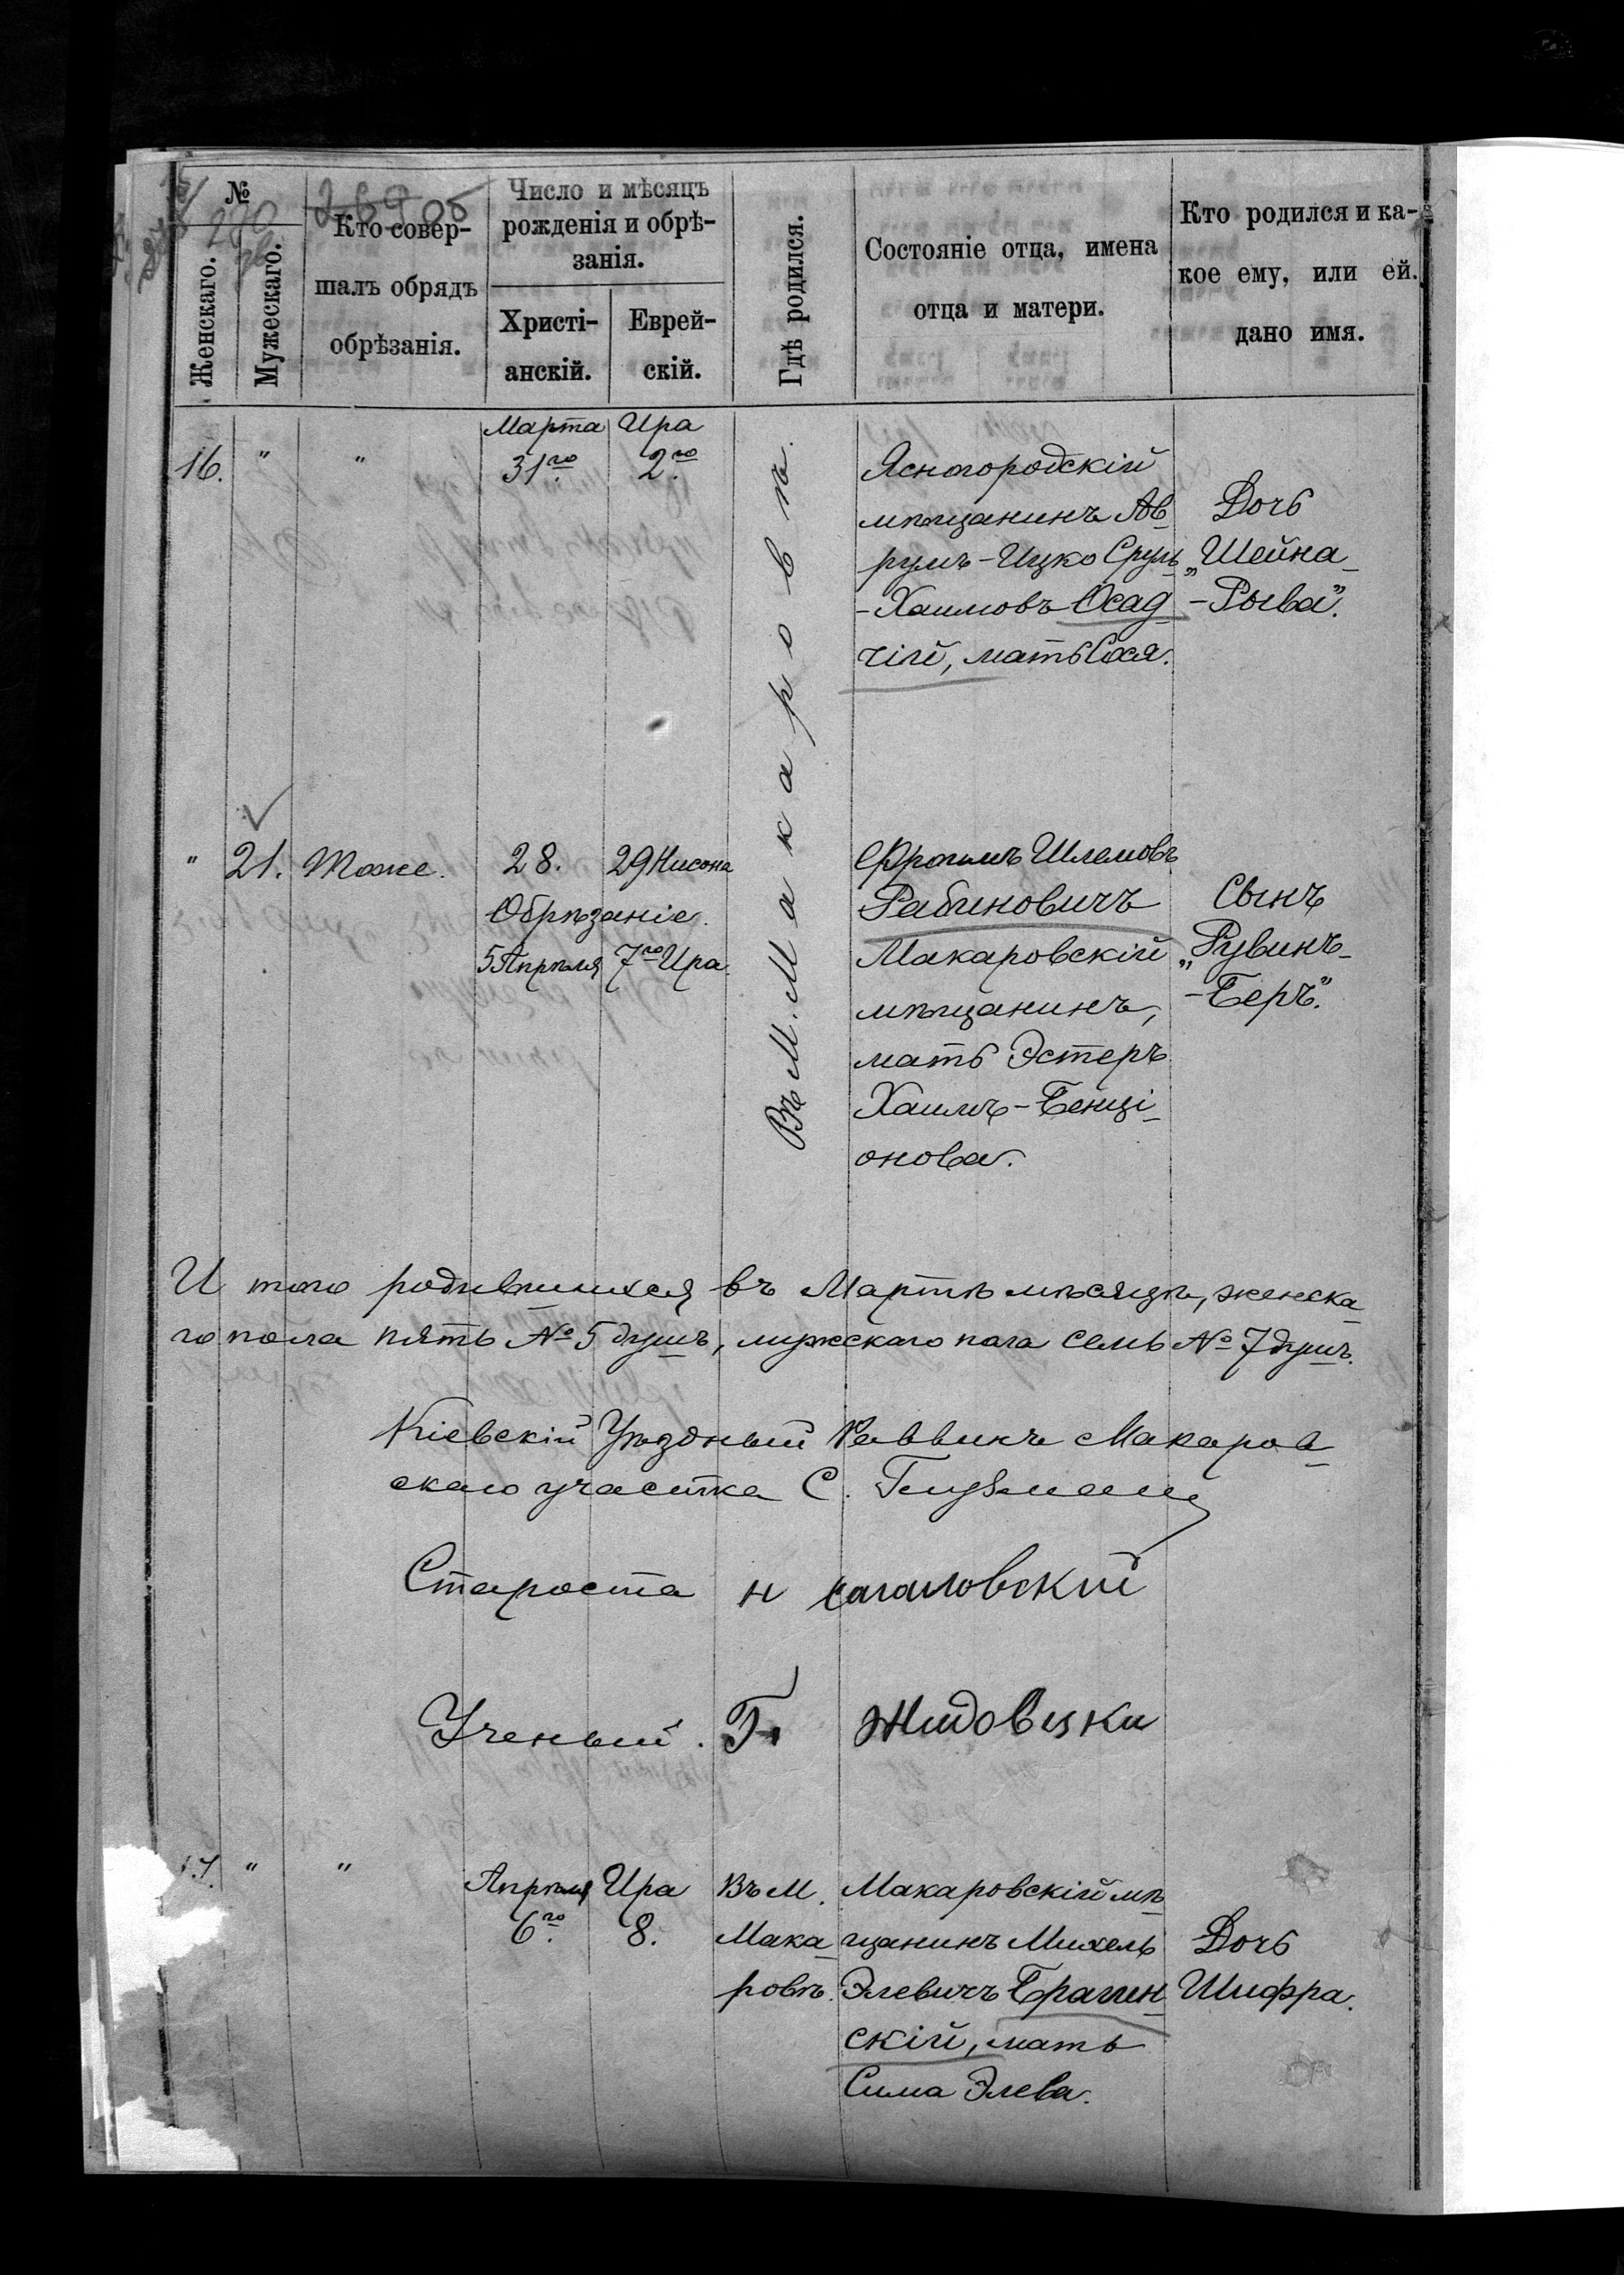 №
Женскаго.
Мужескаго.
Кто совер-
шалъ обрядъ
обрѣзанія.
Число и мѣсяцъ
рожденія и обрѣ-
занія.
Христі-
анскій.
Еврей-
скій.
Гдѣ родился.
Состояніе отца, имена
отца и матери.
Кто родился и ка-
кое ему, или ей.
дано имя.
Марта Ира
16. " " 31го 2го
Въ М. Макаровѣ.
Ясногородскій
мѣщанинъ Ав
румъ-Ицко Сруль
-Хаимовъ Осад
чій, мать Бася.
Дочь
„Шейна-
-Рыва".
" 21. Тоже. 28. 29 Нисона
Обрѣзаніе.
5 Апрѣля 7го Ира.
Фроимъ Шлемовъ
Рабиновичъ
Макаровскій
мѣщанинъ,
мать Эстеръ
Хаимъ-Бенці
онова.
Сынъ
„Рувинъ-
-Беръ".
И того родившихся въ Мартѣ мѣсяцѣ, женска
го пола пять № 5 душъ, мужскаго пола семь № 7 душъ.
Кіевскій Уѣздный Раввинъ Макаров
скаго участка С.
Староста Н Сагаловский
Ученый. Г.
17. " "
Апрѣля Ира
6го. 8.
Въ М.
Мака
ровѣ.
Макаровскій мѣ
щанинъ Михель
Элевичъ Брагин
скій, мать
Сима Элева.
Дочь
Шифра.